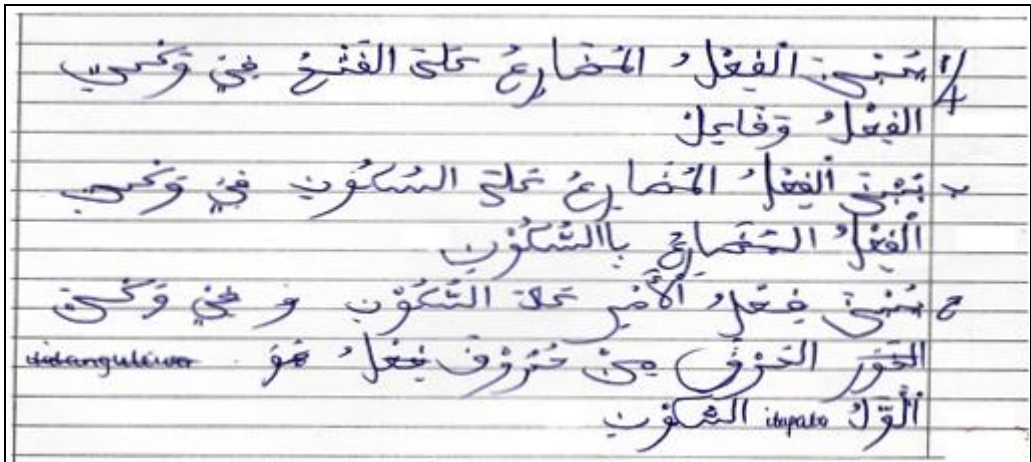 4/ا يُبْنَىَ الْفِعْلُ الْمُضَارِعُ عَلَىَ الفَتْحُ فِيْ وَكْتِيِ
الفِعْلُ وَفَاعِلْ
ب يُبْنَىَ الْفِعْلُ الْمُضَارِعُ عَلَىَ السُكُوْنِ فِيْ وَكْتِيِ
الْفِعْلُ المُضَارِعِ بِاالسُّكُوْنِ
ج يُبْنَىَ فِعْلُ الْأَمْرِ عَلىَ السُّكُوْنِ وَ فِيْ وَكْتِيِ
الحَرْفُ مِنْ حُرُوْفَ فِعْلُ هُوَ
الْوَّلُ itapata السُّكُوْنِ